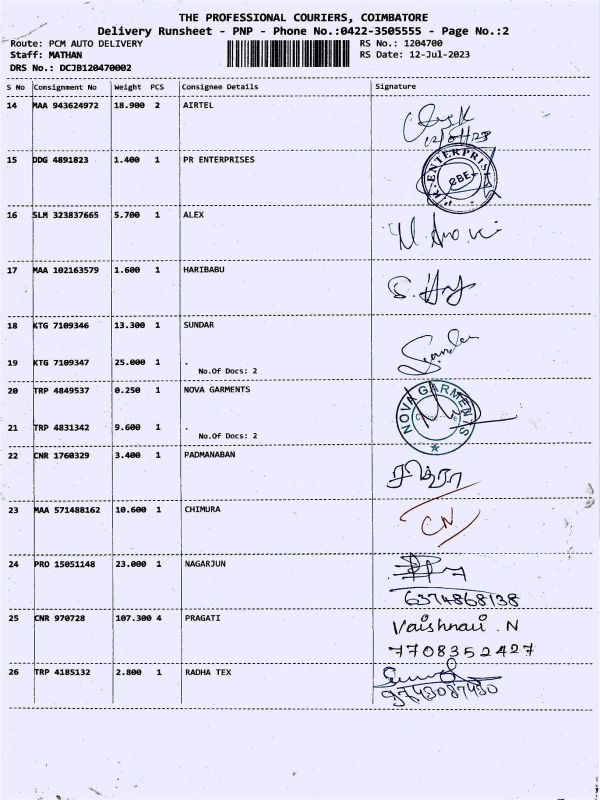 THE PROFESSIONAL COURIERS, COIMBATORE
Delivery Runsheet - PNP - Phone No.:0422-3505555 - Page No.:2
Route: PCM AUTO DELIVERY RS No.: 1204700
Staff: MATHAN RS Date: 12-Jul-2023
DRS No.: DCJB120470002
S No Consignment No Weight PCS Consignee Details Signature
14 MAA 943624972 18.900 2 AIRTEL
15 DDG 4891823 1.400 1 PR ENTERPRISES
16 SLM 323837665 5.700 1 ALEX
17 MAA 102163579 1.600 1 HARIBABU
18 KTG 7109346 13.300 1 SUNDAR
19 KTG 7109347 25.000 1 .
No.Of Docs: 2
20 TRP 4849537 0.250 1 NOVA GARMENTS
NOVA GARMENTS
21 TRP 4831342 9.600 1 .
No.Of Docs: 2
22 CNR 1760329 3.400 1 PADMANABAN
23 MAA 571488162 10.600 1 CHIMURA
CN
24 PRO 15051148 23.000 1 NAGARJUN
6374868138
25 CNR 970728 107.300 4 PRAGATI Vaishnavi .N
7708352427
26 TRP 4185132 2.800 1 RADHA TEX